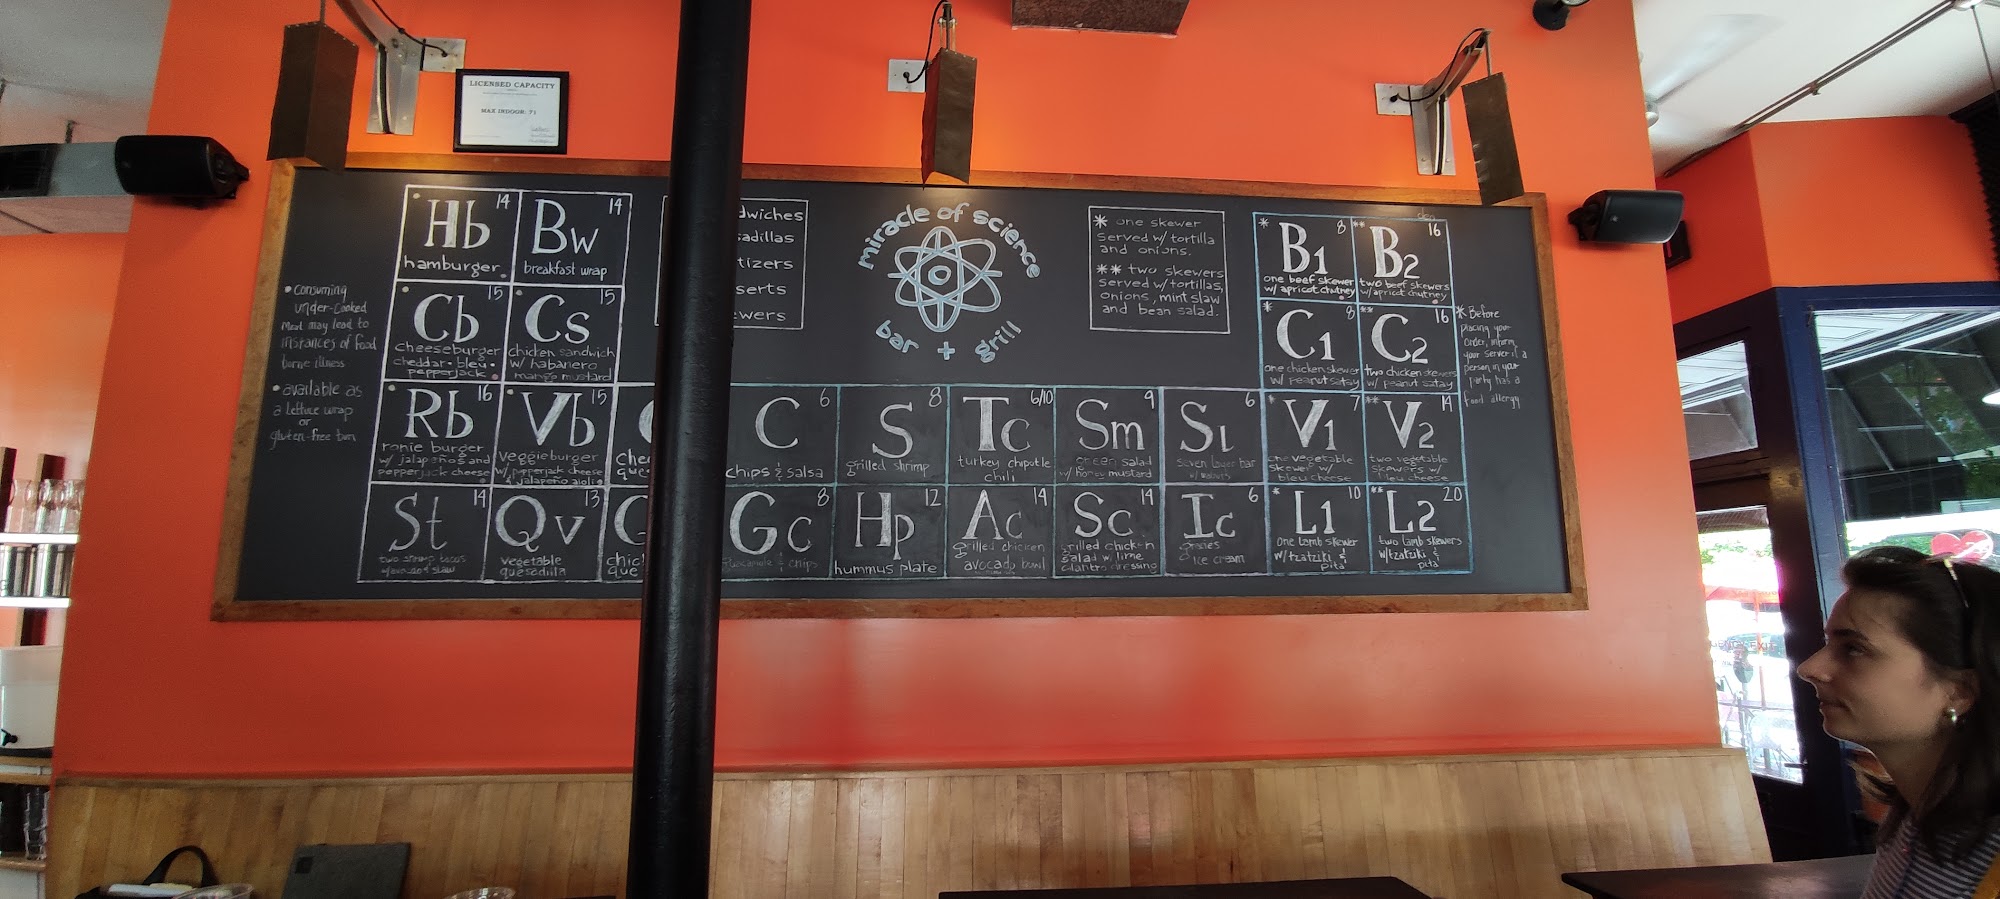 LICENSED CAPACITY
MAX INDOOR: 71
• consuming
under-cooked
meat may lead to
instances of food
borne illness
• available as
a lettuce wrap
or
gluten-free bun
Hb 14
hamburger
Bw 14
breakfast wrap
Cb 15
cheeseburger
cheddar • bleu •
pepperjack
Cs 15
chicken sandwich
w/ habanero
mango mustard
Rb 16
ronie burger
w/ jalapeños and
pepperjack cheese
Vb 15
veggie burger
w/ pepperjack cheese
& jalapeño aioli
St 14
two shrimp tacos
Qv 13
vegetable
quesadilla
dwiches
adillas
tizers
serts
ewers
miracle of science
bar + grill
* one skewer
served w/ tortilla
and onions.
** two skewers
served w/ tortillas,
onions, mint slaw
and bean salad.
C 6
chips & salsa
S 8
grilled shrimp
Tc 6/10
turkey chipotle
chili
Sm 9
green salad
w/ honey mustard
SL 6
seven layer bar
w/ walnuts
Gc 8
guacamole & chips
Hp 12
hummus plate
Ac 14
grilled chicken
avocado bowl
Sc 14
grilled chicken
salad w/ lime
cilantro dressing
Ic 6
ice cream
* B1 8
one beef skewer
w/ apricot chutney
** B2 16
two beef skewers
w/ apricot chutney
* C1 8
one chicken skewer
w/ peanut satay
** C2 16
two chicken skewers
w/ peanut satay
* V1 7
one vegetable
skewer w/
bleu cheese
** V2 14
two vegetable
skewers w/
bleu cheese
* L1 10
one lamb skewer
w/ tzatziki &
pita
** L2 20
two lamb skewers
w/ tzatziki &
pita
* Before
placing your
order, inform
your server if a
person in your
party has a
food allergy